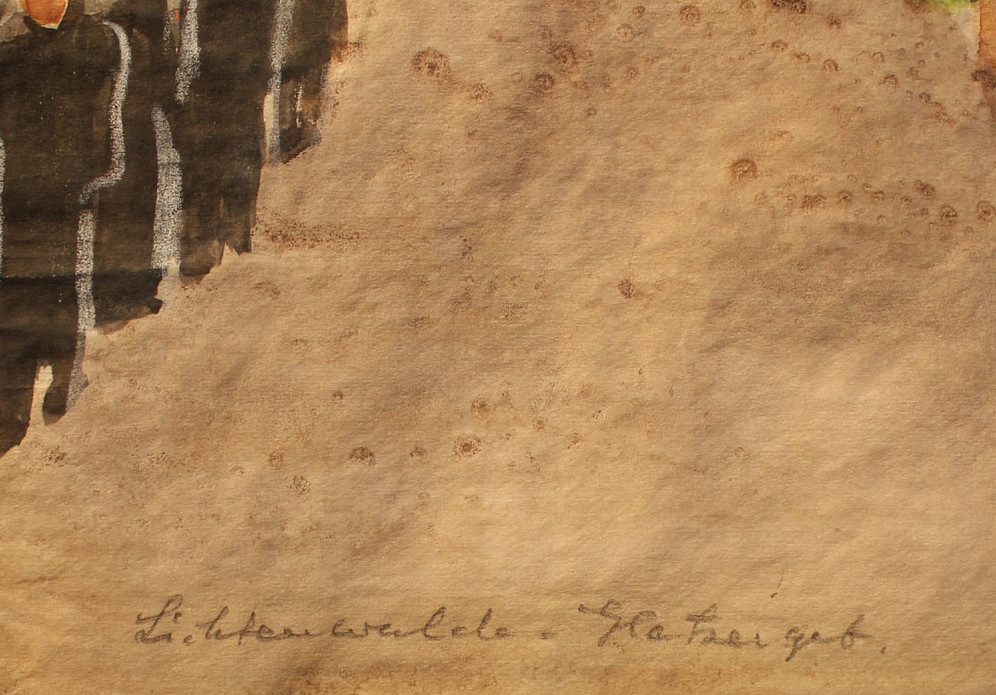 Lichtenwalde - Glatzergeb.